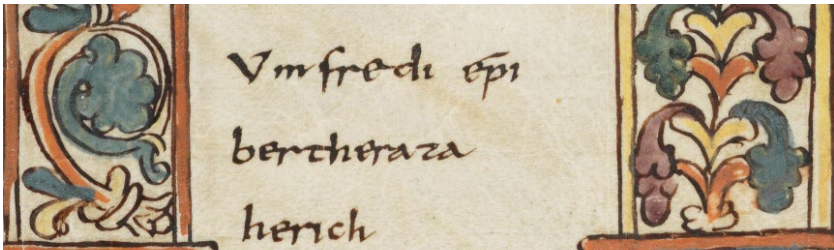 Vmfredi ep̄i
bertherata
herich